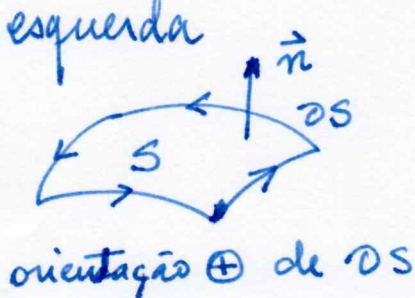 esquerda
n⃗
∂S
S
orientação ⊕ de ∂S